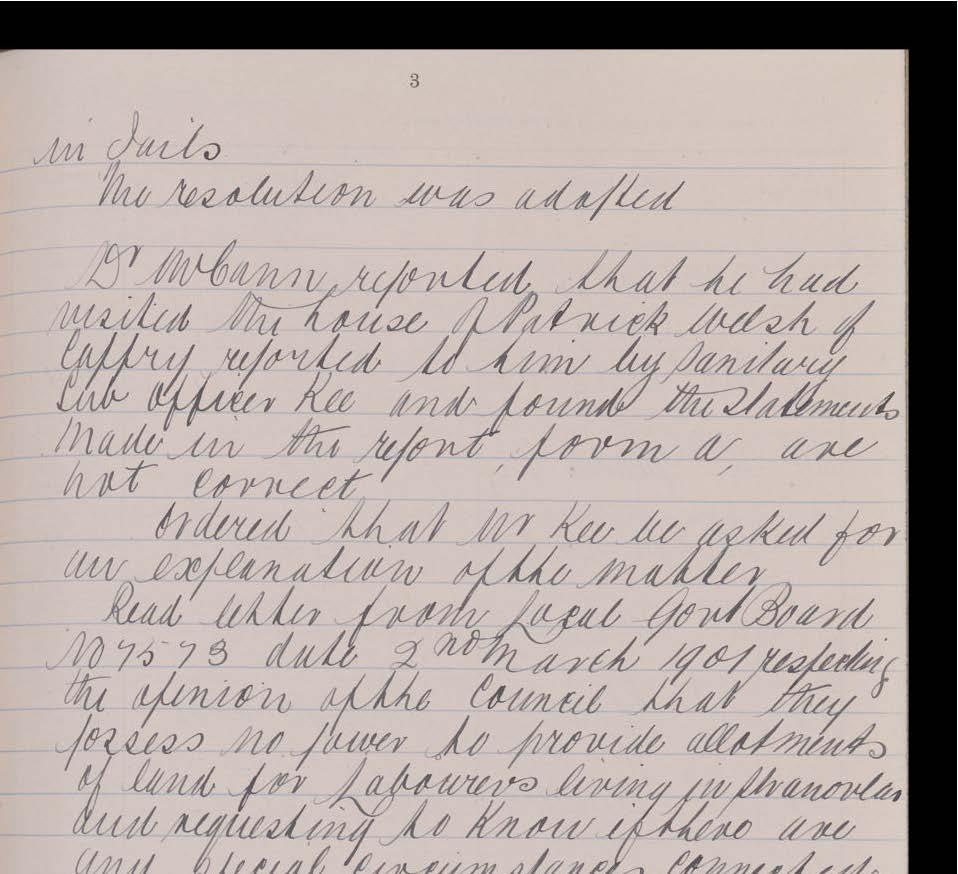 3
in Jails
The resolution was adopted
Dr McCann reported that he had
visited the house of Patrick Welsh of
Cappry reported to him by Sanitary
Sub Officer Kee and found the statements
made in the report, form a, are
not correct
Ordered that Mr Kee be asked for
an explanation of the matter
Read letter from Local Govt Board
No 7573 date 2nd March 1901 respecting
the opinion of the Council that they
possess no power to provide allotments
of land for Labourers living in Stranorlar
and requesting to know if there are
any special circumstances connected